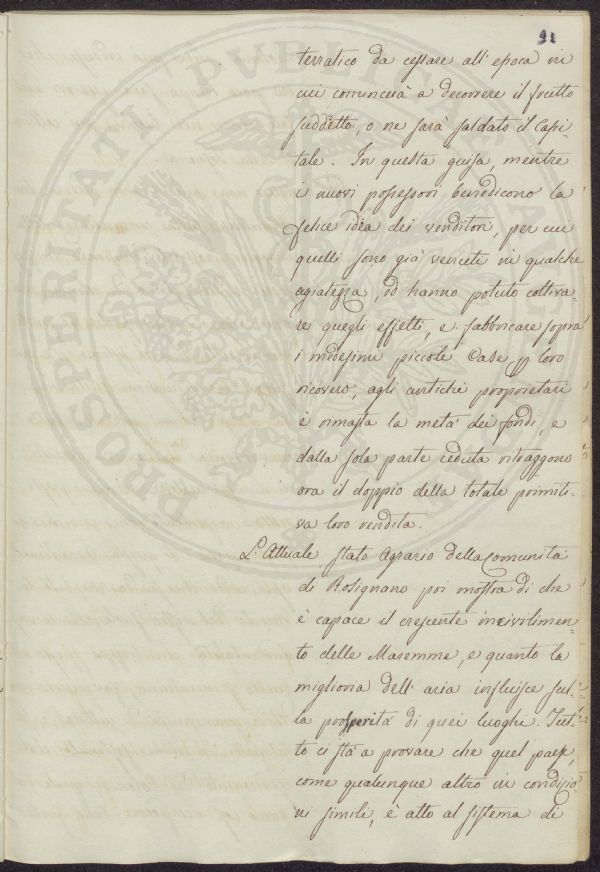 91
terratico da cessare all'epoca in
cui comincerà a decorrere il frutto
suddetto, o ne sarà saldato il Capi-
tale. In questa guisa, mentre
i nuovi possessori benedicono la
felice idea dei venditori, per cui
quelli sono già venuti in qualche
agiatezza, ed hanno potuto coltiva-
re quegli effetti, e fabbricare sopra
i medesimi piccole Case p loro
ricovero, agli antichi proprietari
è rimasta la metà dei fondi, e
dalla sola parte ceduta ritraggono
ora il doppio della totale primiti-
va loro vendita.
L'Attuale stato Agrario della Comunità
di Rosignano poi mostra di che
è capace il crescente incivilimen-
to delle Maremme, e quanto la
migliovia dell'aria influisce sul-
la prosperità di quei luoghi. Tut-
to ci stà a provare che quel paese,
come qualunque altro in condizio-
ni simile, è atto al sistema di
PROSPERITATI PVBLICAE